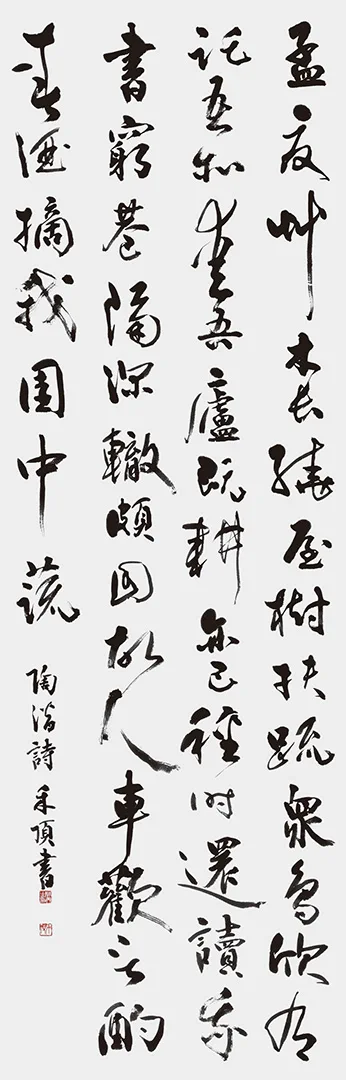 孟夏艸木長繞屋樹扶疏衆鳥欣有
託吾亦愛吾廬既耕亦已種时還讀我
書窮巷隔深轍頗回故人車歡言酌
春酒摘我園中蔬
陶潛詩禾頂書